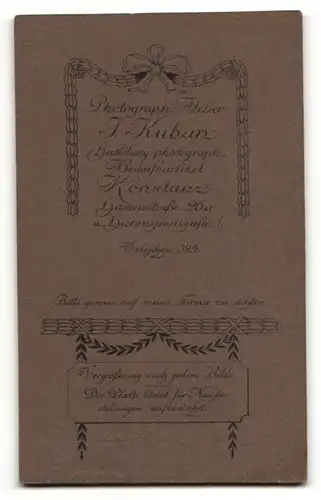 Photograph. Atelier
J. Kuban
Handlung photograph.
Bedarfsartikel
Konstanz
Hussenstraße 26a
u. Hieronymusgasse 1
Telephon
Bitte genau auf meine Firma zu achten
Vergrößerung nach jedem Bilde
Die Platte bleibt für Nachbe-
stellungen aufbewahrt.